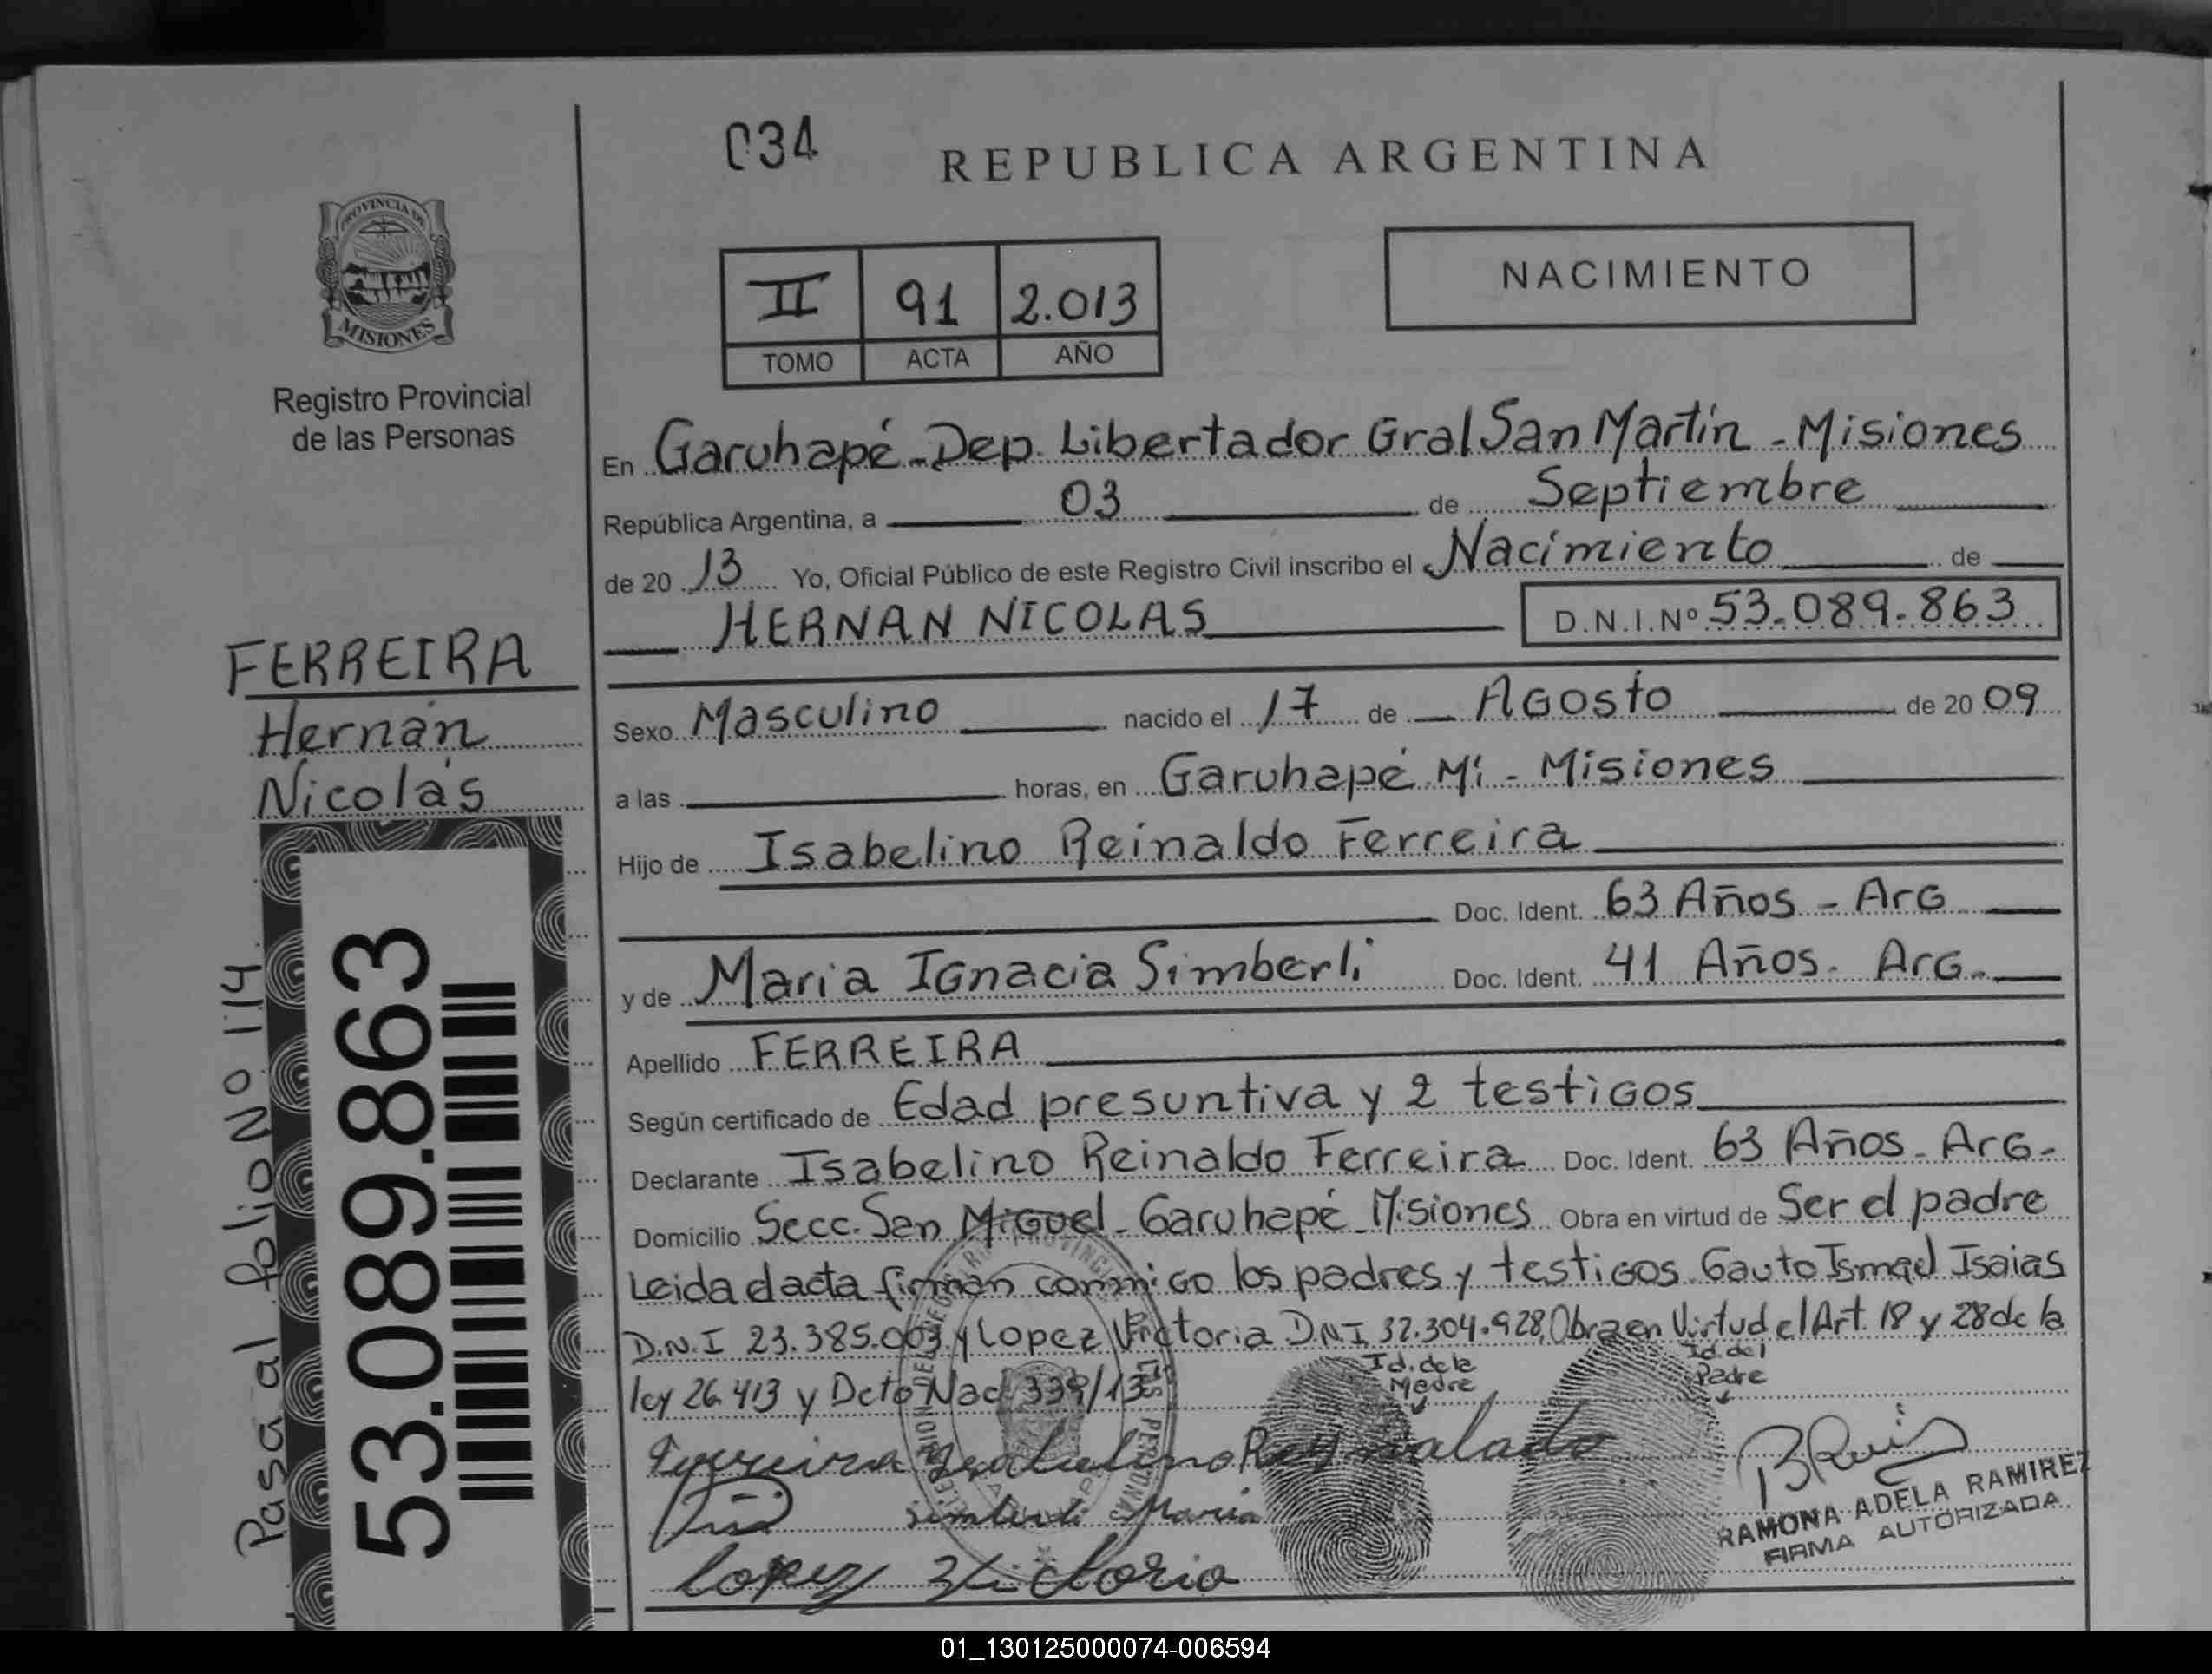 034
REPUBLICA ARGENTINA
PROVINCIA DE
MISIONES
Registro Provincial
de las Personas
II 91 2.013
TOMO ACTA AÑO
NACIMIENTO
En Garuhapé - Dep. Libertador Gral San Martín - Misiones
República Argentina, a 03 de Septiembre
de 20 13 Yo, Oficial Público de este Registro Civil inscribo el Nacimiento de
HERNAN NICOLAS D.N.I.Nº 53.089.863
FERREIRA
Hernán
Nicolás
Sexo Masculino nacido el 17 de Agosto de 20 09
a las horas, en Garuhapé Mi - Misiones
Hijo de Isabelino Reinaldo Ferreira
Doc. Ident. 63 Años - Arg
y de Maria Ignacia Simberli Doc. Ident. 41 Años - Arg.
Apellido FERREIRA
Según certificado de Edad presuntiva y 2 testigos
Declarante Isabelino Reinaldo Ferreira Doc. Ident. 63 Años - Arg.
Domicilio Secc. San Miguel - Garuhapé - Misiones Obra en virtud de Ser el padre
Leida el acta firman conmigo los padres y testigos Gauto Ismael Isaias
D.N.I 23.385.003 y Lopez Victoria D.N.I 32.304.928, Obra en Virtud el Art. 18 y 28 de la
ley 26.413 y Dcto Nac 339/13
Id. de la Madre
Id. del Padre
Ferreira
Simberli Maria
Lopez Victoria
RAMONA ADELA RAMIREZ
FIRMA AUTORIZADA
53.089.863
Pasa al folio Nº 114
01_130125000074-006594